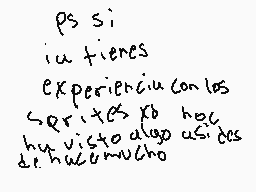 ps si
ia tienes
experiencia con los
sprites xb hoc
ha visto algo asi des
de hacemucho